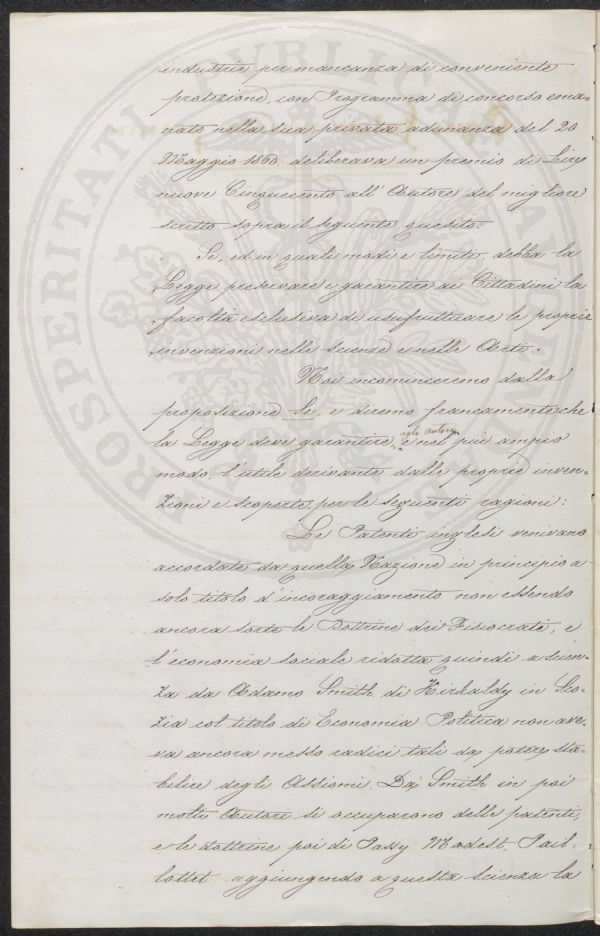 industria per mancanza di conveniente
protezione, con Programma di concorso ema-
nato nella sua privata adunanza del 20
Maggio 1860. deliberava un premio di Lire
nuove Cinquecento all'Autore del migliore
scritto sopra il seguente quesito:
Se, ed in quali modi e limiti, debba la
Legge preservare e garantire ai Cittadini la
facoltà esclusiva di usufruttuare le proprie
invenzioni nelle scienze e nelle Arti.
Noi incominceremo dalla
proposizione Se, e diremo francamente che
la Legge deve garantire agli autori, e nel più ampio
modo, l'utile derivante dalle proprie inven-
zioni e scoperte, per le seguenti ragioni:
Le Patenti inglesi venivano
accordate da quella Nazione in principio a
solo titolo d'incoraggiamento non essendo
ancora sorte le Dottrine dei Fisiocrate, e
l'economia sociale ridotta quindi a scien-
za da Adamo Smith di Kirkaldy in Sco-
zia col titolo di Economia Politica non ave-
va ancora messo radici tali da potere sta-
bilire degli Assiomi. Da Smith in poi
molti Autori si occuparono delle patenti,
e le dottrine poi di Passy Modest, Pail-
lottet aggiungendo a questa scienza la
PROSPERITATI PVBLICAE